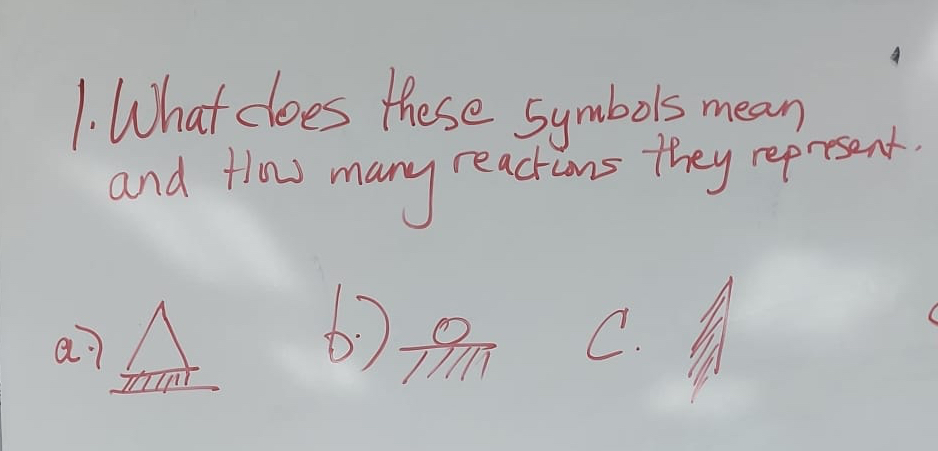 1. What does these symbols mean
and How many reactions they represent.
a.) b.) C.